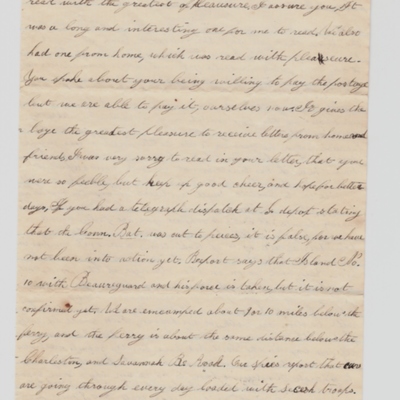 read with the greatest of pleasure, I assure you, It
was a long and interesting one for me to read. We also
had one from home, which was read with pleasure.
You spoke about your being willing to pay the postage
but we are able to pay it, ourselves now. It gives the
boys the greatest pleasure to receive letters from home and
friends, I was very sorry to read in your letter, that you
were so feeble, but keep up good cheer, and hope for better
days, If you had a telegraph dispatch at So depot stating
that the Conn. Bat. was cut to pieces, it is false, for we have
not been into action yet. Report says that Island No.
10 with Beaureguard and his force is taken, but it is not
confirmed yet. We are encamped about 8 or 10 miles below the
ferry, and the ferry is about the same distance below the
Charleston, and Savannah R. Road. Our spies report that cars
are going through every day loaded with secesh troops.